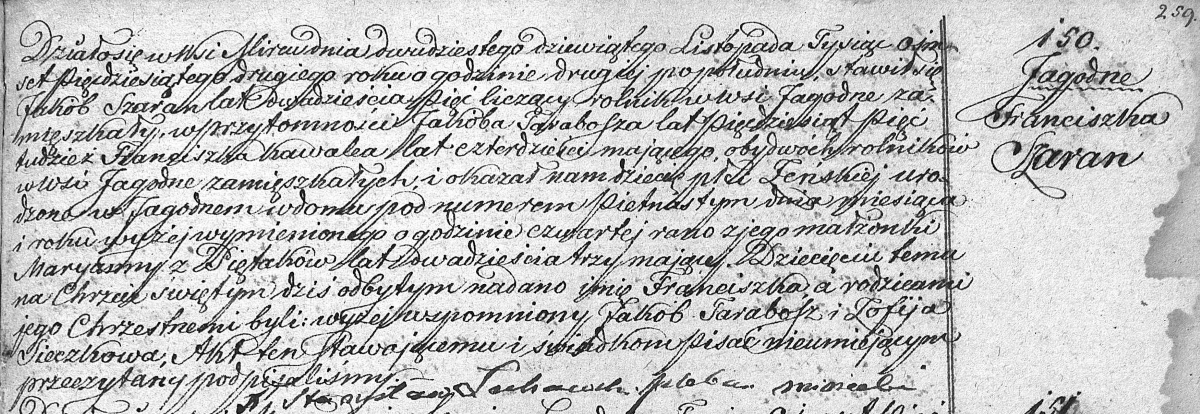 259.
Działo się w Wsi Mirowdnia dwudziestego dziewiątego Listopada Tysiąc ośm-
set Pięćdziesiątego drugiego roku o godzinie drugiej popołudniu, stawił się
Jakób Szaran lat dwadzieścia Pięć liczący rolnik w Wsi Jagodne za-
mięszkały, w przytomności Jakóba Tarabosza lat Pięćdziesiąt Pięć
tudzież Franciszka Kawalca lat czterdzieści mającego, obydwóch rolników
w Wsi Jagodne zamięszkałych, i okazał nam dziecię płci Żeńskiej uro-
dzone w Jagodnem w domu pod numerem Piętnastym dnia miesiąca
i roku wyżej wymienionego o godzinie czwartej rano z jego małżonki
Maryanny z Piętaków lat dwadzieścia trzy mający. Dziecięciu temu
na Chrzcie świętym dziś odbytym nadano imię Franciszka a rodzicami
jego Chrzestnemi byli: wyżej wspomniony Jakób Tarabosz i Zofija
Sieczkowa, Akt ten stawającemu i świadkom pisać nieumiejącym
przeczytany podpisaliśmy.
X. Stanisław
150.
Jagodne
Franciszka
Szaran
151.